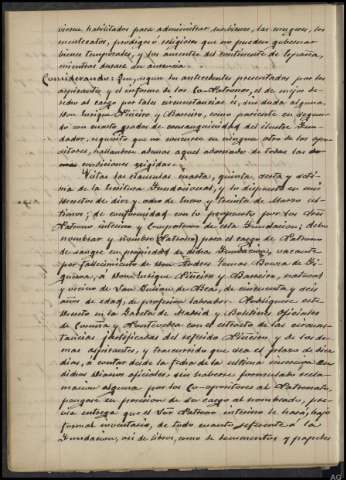 viesen, habilitados para administrar sus bienes, las mugeres, los
mentecatos, prodigos ó religiosos que no puedan gobernar
bienes temporales, y los ausentes del continente de España,
mientras durase su ausencia.
Considerando: Que, segun los antecedentes presentados por los
aspirantes y el informe de los Co-Patronos, el de mejor de-
recho al cargo por tales circunstancias és, sin duda alguna,
Don Enrique Piñeiro y Barreiro, como pariente en segun-
do con cuarto grado de consanguinidad del ilustre Fun-
dador, requisito que no concurre en ningun otro de los opo-
sitores, hallandose ademas aquel adornado de todas las de-
mas condiciones exigidas.
Vistas las clausulas cuarta, quinta, sexta y déci-
ma de la Escritura fundacional, y lo dispuesto en mis
Decretos de diez y ocho de Enero y treinta de Marzo úl-
timos; de conformidad con lo propuesto por los Señores
Patrono interino y Compatrono de esta Fundacion; debo
nombrar y nombro Patrono para el cargo de Patrono
de sangre en propiedad de dicha Fundacion, vacante
por fallecimiento de Don Andres
á Don Enrique Piñeiro y Barreiro, natural
y vecino de San Julian de Bea, de cincuenta y seis
años de edad, de profesion labrador. Publiquese este
Decreto en la Gaceta de Madrid y Boletines oficiales
de Coruña y Pontevedra con el extracto de las circuns-
tancias justificadas del referido Piñeiro y de los de-
mas aspirantes, y transcurrido que sea el plazo de diez
dias, á contar desde la fecha de la ultima insercion en
dichos diarios oficiales, sin haberse formulado recla-
macion alguna por los Co-opositores al Patronato,
pongase en posesion de su cargo al nombrado, pré-
via entrega que el Sor Patrono interino le hará, bajo
formal inventario, de todo cuanto referente á la
Fundacion, asi de libros, como de documentos y papeles